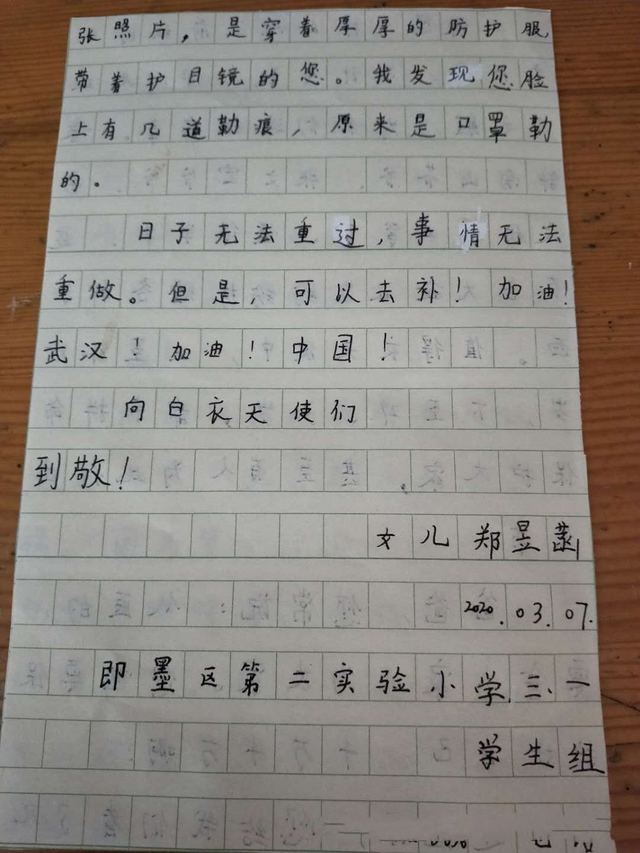 张照片，是穿着厚厚的防护服
带着护目镜的您。我发现您脸
上有几道勒痕，原来是口罩勒
的。
日子无法重过，事情无法
重做。但是，可以去补！加油！
武汉！加油！中国！
向白衣天使们
到敬！
女儿郑昱菡
2020.03.07.
即墨区第二实验小学三、一
学生组